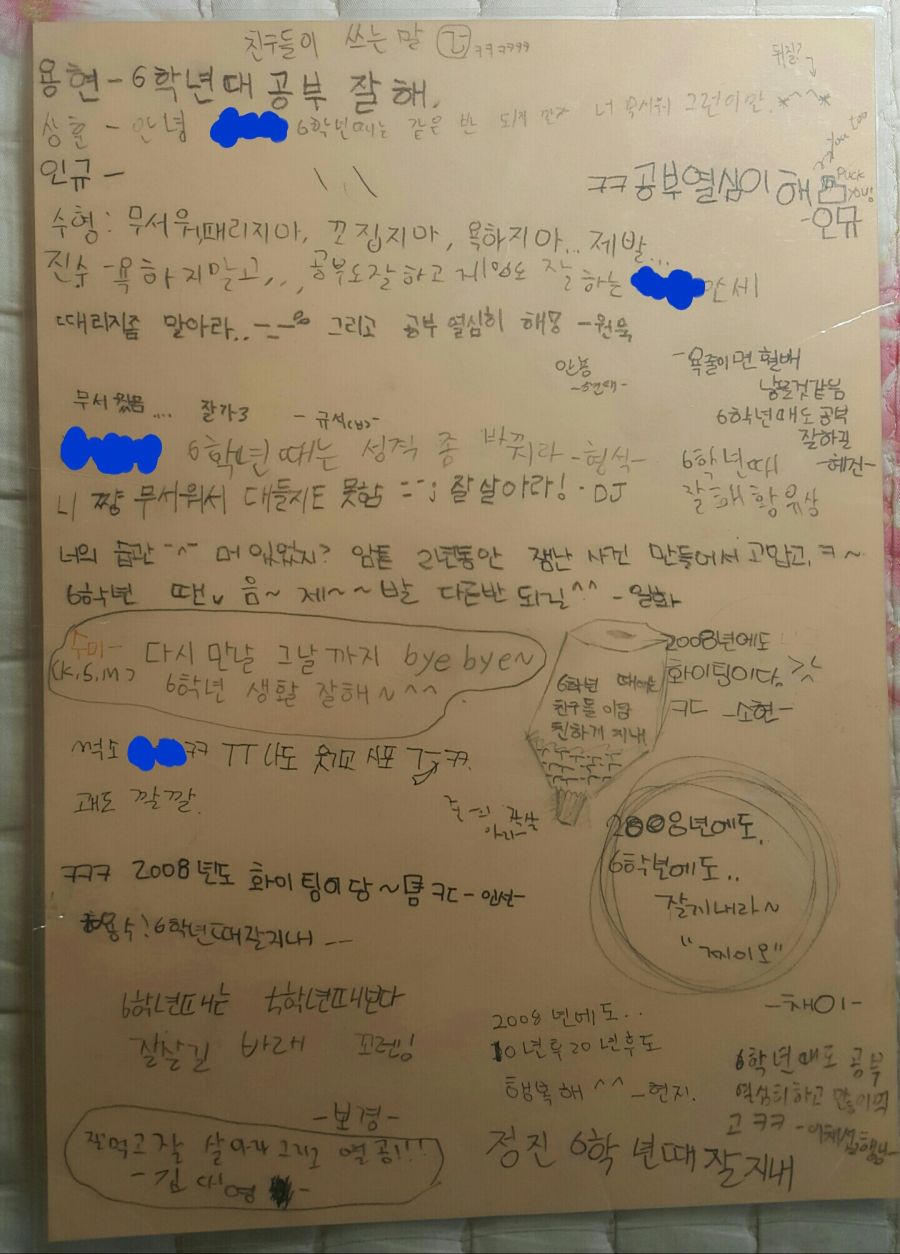 친구들이 쓰는 말 ㅋㅋㅋ
용현-6학년때 공부 잘해,
상훈 - 안녕 6학년때는 같은 반 되지 말자 너 무서워 그럼이만 *^^*
you too
인규-
ㅋㅋ공부열심이 해
FUCK YOU!
-인규
수형: 무서워,때리지마, 꼬집지마, 욕하지마... 제발...
진수-욕하지말고,,, 공부도잘하고 게임도 잘하는 만세
때리지좀 말아라..-_-% 그리고 공부 열심히 해 -원욱
안뇽
-욕줄이면 훨배
낳을것같음
6학년때도 공부
잘하길
-혜진-
무서웠음.... 잘가3 -규석
6학년때는 성격 좀 바꿔라 -형석-
6학년때
잘해
니 짱 무서워서 대들지도 못함 --; 잘살아라! - DJ
너의 습관 -^- 머 있었지? 암튼 2년동안 잼난 사건 만들어서 고맙고,ㅋ~
6학년 땐 음~ 제~~발 다른반 되길^^ -일화
수미-
(K,S,M) 다시 만날 그날까지 bye bye~
6학년 생활 잘해~^^
6학년 때에는
친구들이랑
친하게 지내
2008년에도
화이팅이다,
ㅋㄷ -소현-
썩소 ㅋㅋ ㅜㅜ 나도 웃고 시포 ㅋㅋ.
걔도 깔깔.
2008년에도,
6학년에도..
잘지내라~
"찌이오"
-채이-
ㅋㅋㅋ 2008년도 화이팅이당~ ㅋㄷ-인선-
용수!6학년때잘지내--
6학년때는 5학년때보다
잘살길 바래
-보경-
2008년에도..
10년후20년후도
행복해^^ -현지.
6학년때도 공부
열심히하고 많이먹
고 ㅋㅋ
잘먹고잘 살아라 그리고 열공!!!
-김대영-
정진 6학년때잘지내